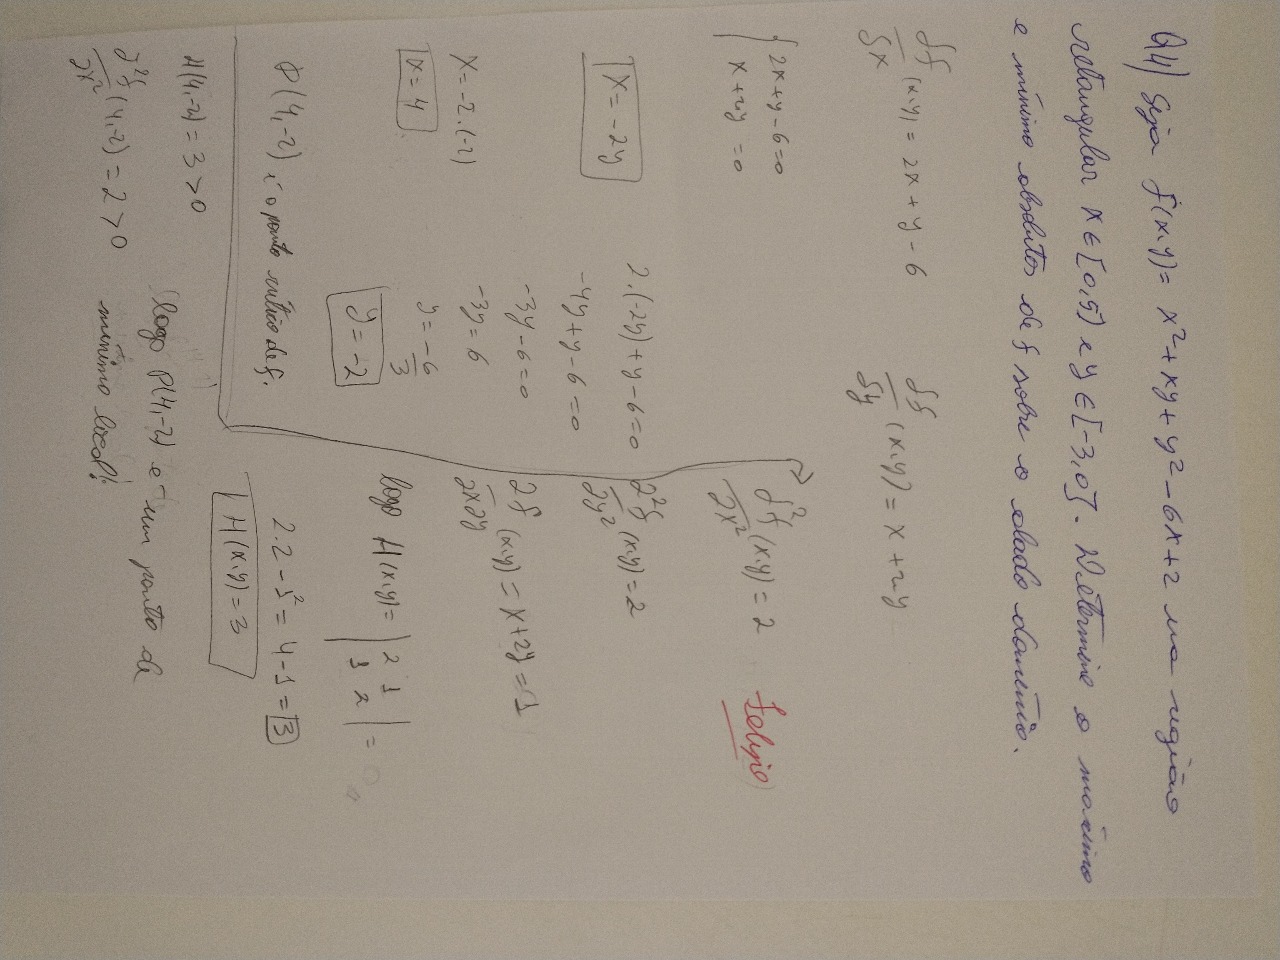 Q4) Seja f(x,y)= x²+xy+y²-6x+2 na região
retangular x∈[0,5] e y∈[-3,0]. Determine o máximo
e mínimo absolutos de f sobre o dado domínio.
δf/δx (x,y) = 2x+y-6
δf/δy (x,y) = x+2y
{ 2x+y-6=0
x+2y =0
x=-2y
2.(-2y)+y-6=0
-4y+y-6=0
-3y-6=0
-3y=6
y=-6/3
y=-2
x=-2.(-2)
x=4
P(4,-2) é o ponto crítico de f.
∂²f/∂x² (x,y)=2
Felipe
∂²f/∂y² (x,y)=2
∂f/∂x∂y (x,y)=x+2y=1
logo H(x,y)= |2 1
1 2| =
2.2-1²=4-1=3
H(x,y)=3
H(4,-2)=3>0
∂²f/∂x² (4,-2)=2>0
logo P(4,-2) é um ponto de
mínimo local!